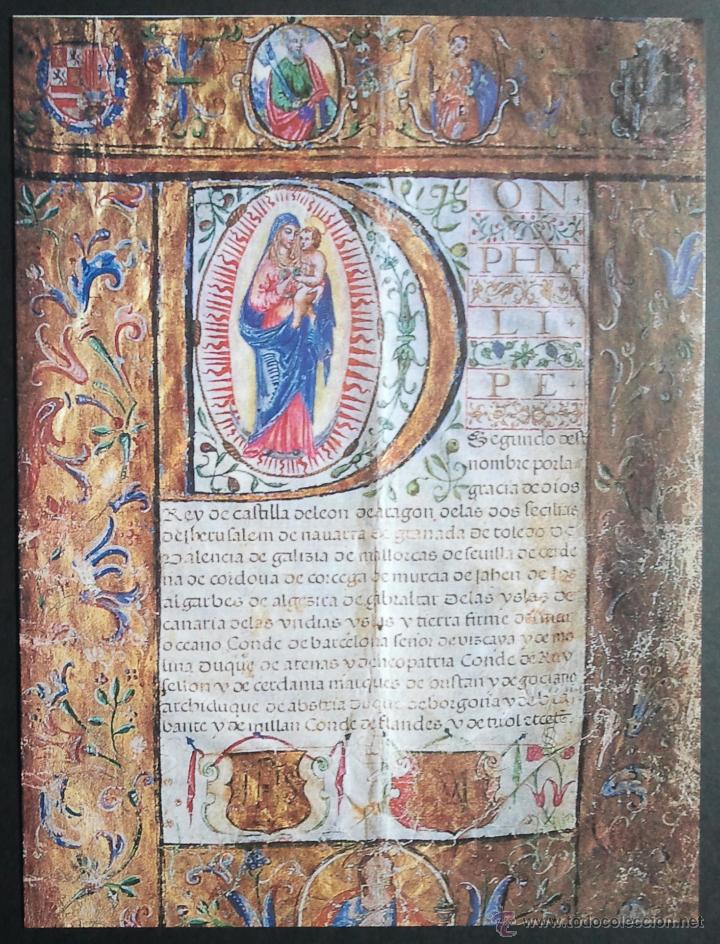 D ON
PHE
LI
PE
Segundo deste
nombre por la
gracia de dios
Rey de castilla de leon de aragon de las dos secilias
de iherusalem de navarra de granada de toledo de
valencia de galizia de mallorcas de sevilla de cerde
na de cordova de corcega de murcia de jahen de los
algarbes de algezira de gibraltar de las yslas de
canaria de las yndias yslas y tierra firme del mar
oceano Conde de barcelona señor de viscaya y de mo
lina Duque de atenas y de neopatria Conde de Ruy
sellon y de cerdania marques de oristan y de gociano
archiduque de abstria Duque de borgoña y de bra
bante y de millan Conde de flandes y de tirol etcetc.
IHS
www.todocoleccion.net